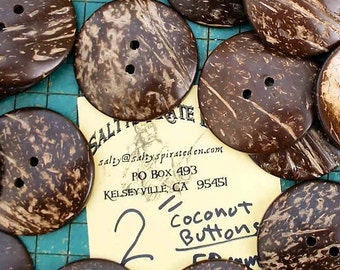 salty@saltyspirateden.com
PO BOX 493
KELSEYVILLE, CA 95451
2 "
Coconut
Buttons